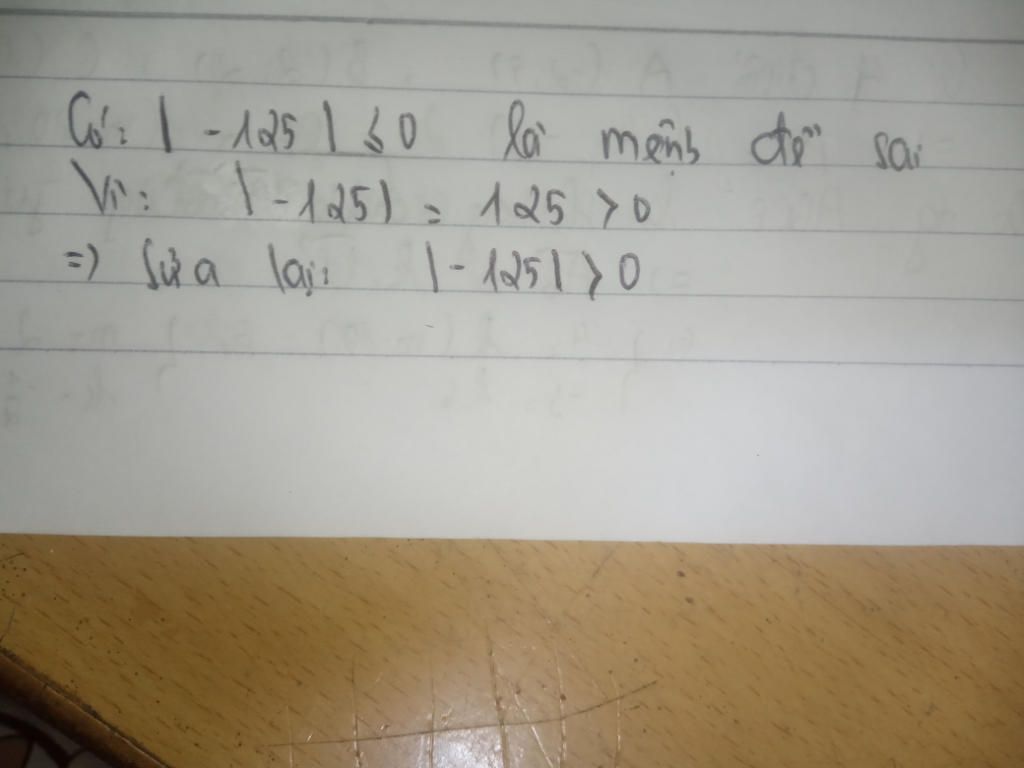 Có: | -125 | ≤ 0 là mệnh đề sai
Vì: |-125| = 125 > 0
=> Sửa lại: |-125| > 0